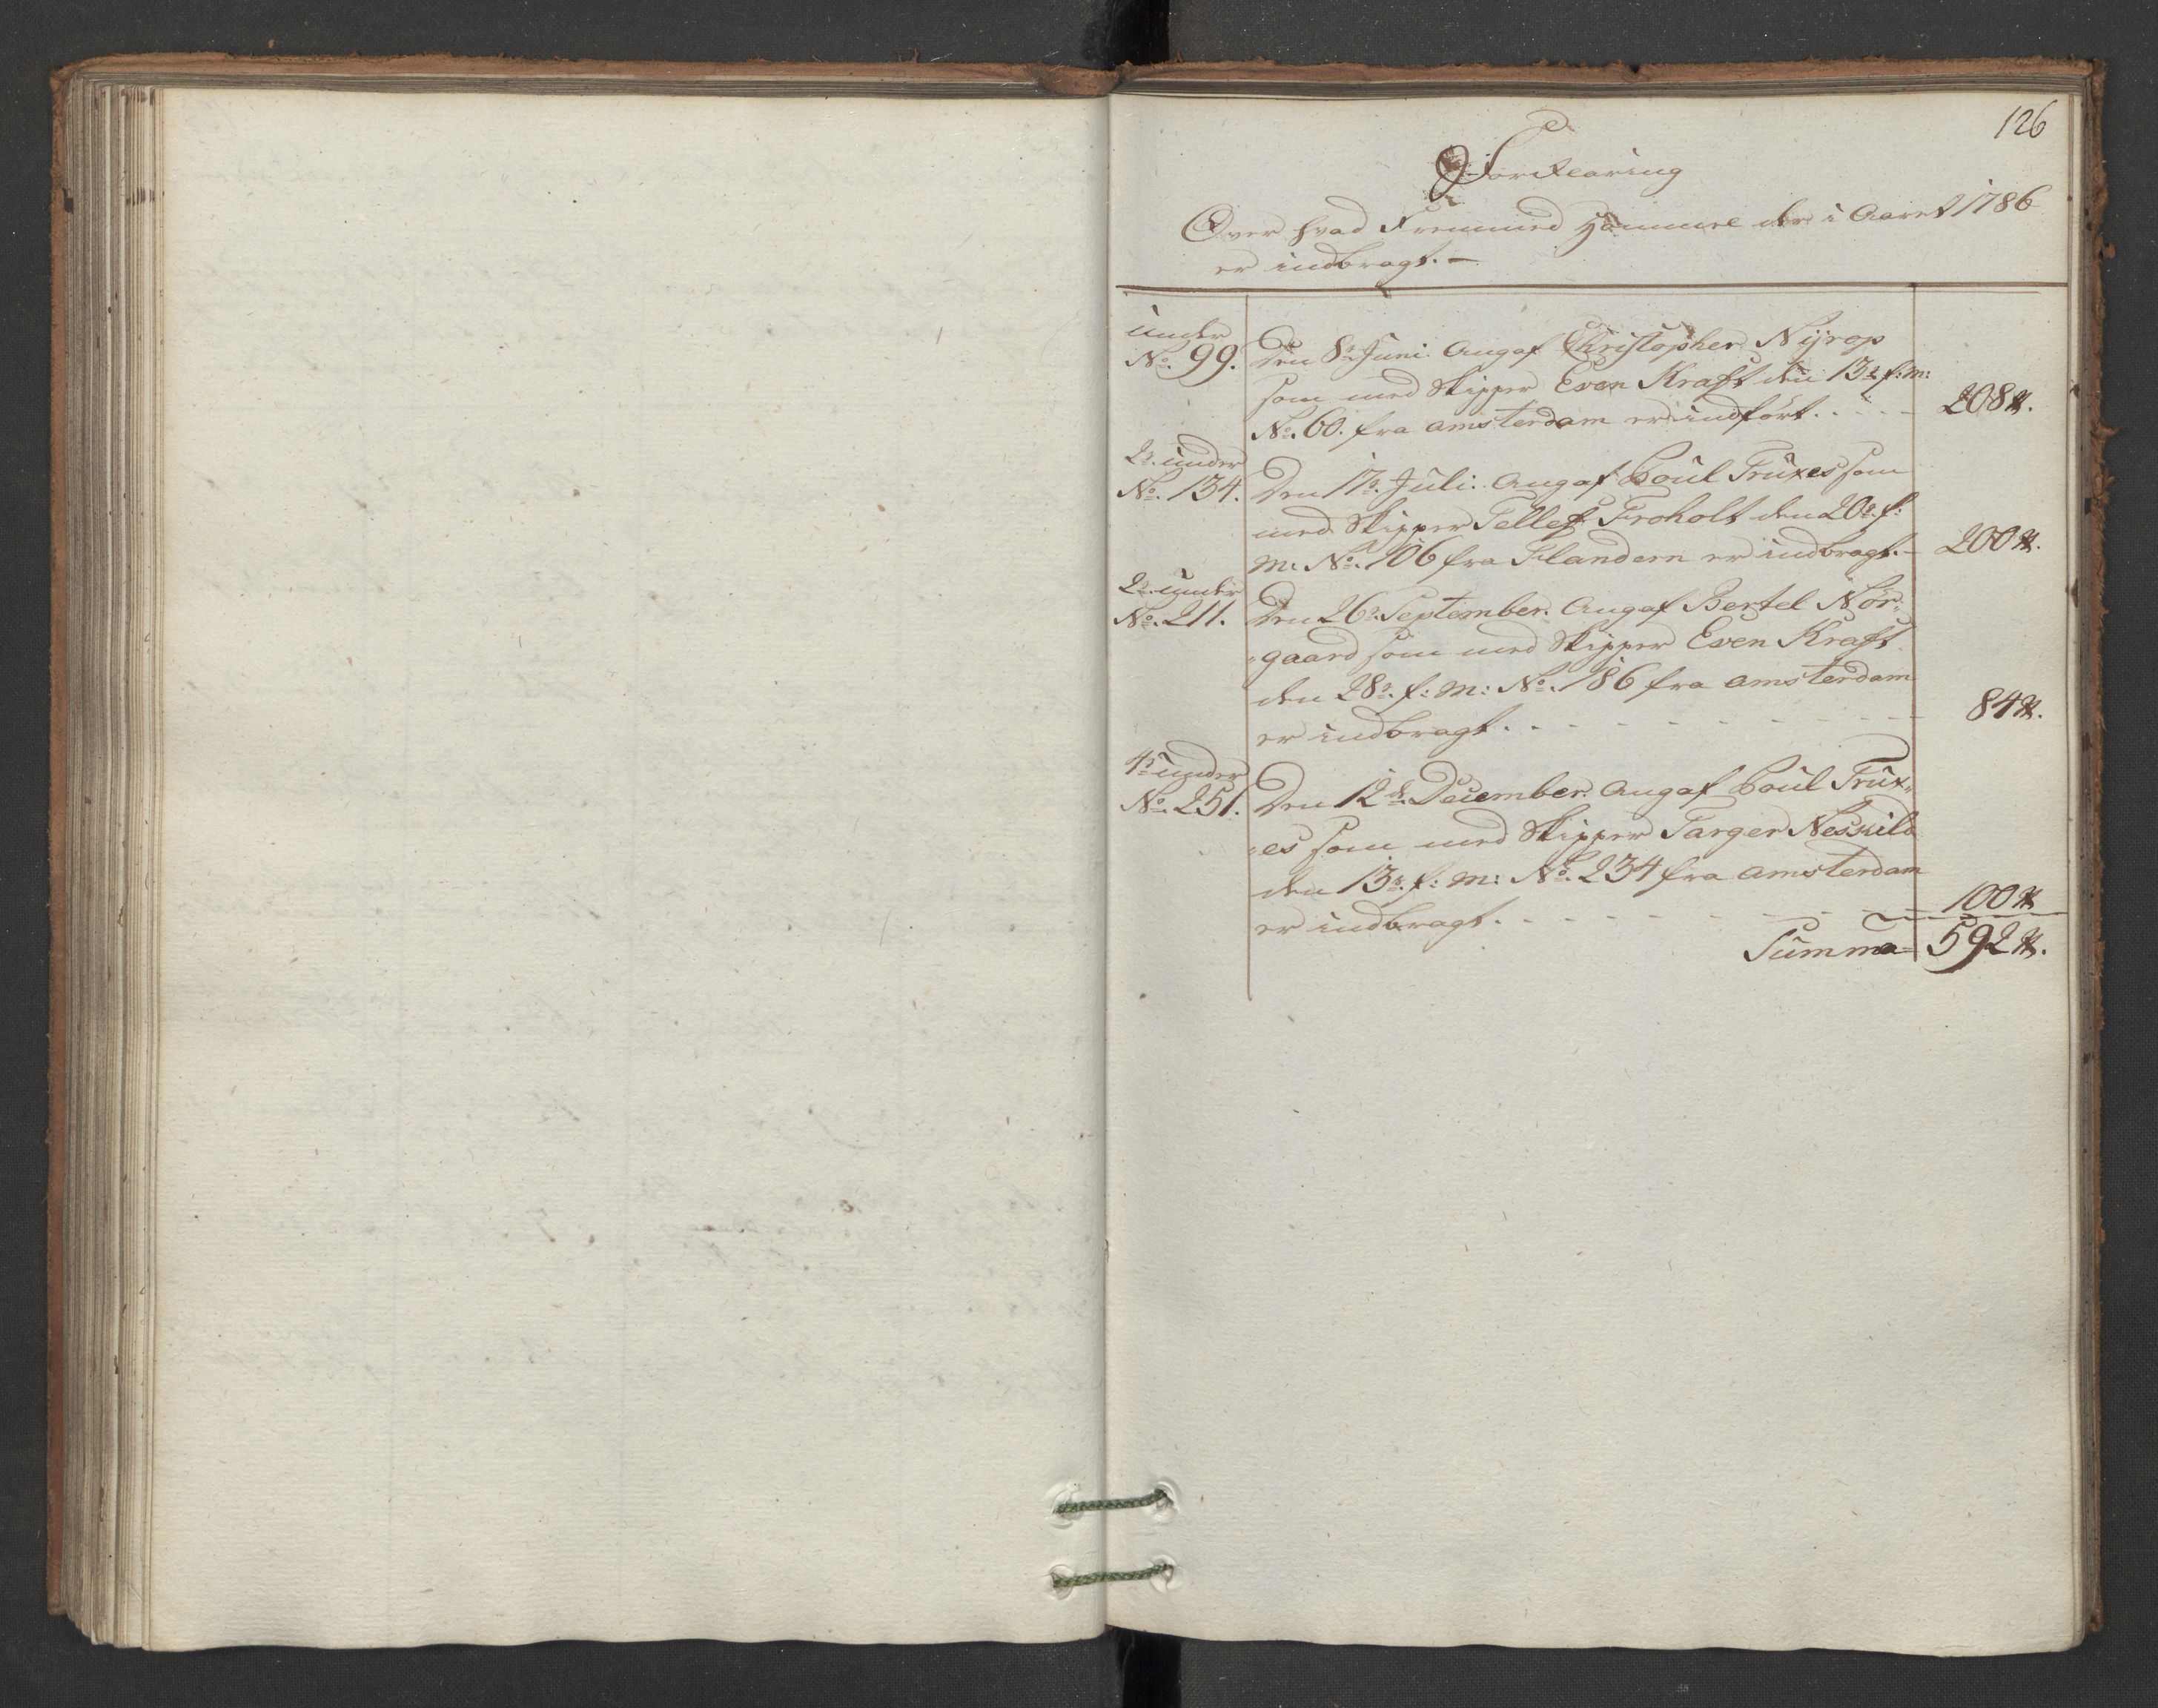 126
Forklaring
Over hvad Fremmed Hommel der i Aaret 1786
er indbragt. –
under
No. 99. Den 8de Juni. Angaf Christopher Nÿrop
som med Skipper Even Kraft den 13de f: m:
No. 60. fra Amsterdam er indført. . . . . 208 ℔.
2de under
No. 134. Den 17de Juli. Angaf Poul Truxes som
med Skipper Tellef Froholt den 20de f:
m: No. 106 fra Flandern er indbragt. – 200 ℔.
2de under
No. 211. Den 26de September. Angaf Bertel Nør-
gaard som med Skipper Even Kraft
den 28de f: m: No. 186 fra Amsterdam
er indbragt. - - - - - 84 ℔.
4de under
No. 251. Den 12de December. Angaf Poul Trux-
es som med Skipper Targer Neskild
den 13de f: m: No. 234 fra Amsterdam
er indbragt. - - - - - 100 ℔
Summa 592 ℔.